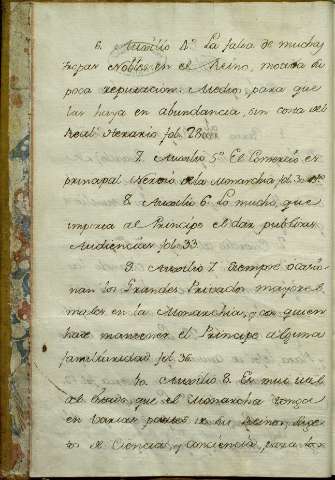 6. Auxilio 4º La falta de muchas
tropas Nobles en el Reino, motiva su
poca reputacion. Medio, para que
las haya en abundancia, sin costa del
Real Herario fol. 28
7. Auxilio 5º El Comercio es
principal Nervio de la Monarchia fol. 3
8. Auxilio 6º Lo mucho, que
importa al Principe el dar publicas
Audiencias fol. 33
9. Auxilio 7. Siempre ocasio-
nan los Grandes Privados mayores
males en la Monarchia, con quien
hade mantener el Principe alguna
familiaridad fol. 36
10. Auxilio 8. Es mui util
al estado, que el Monarcha tenga
en varias partes de su Reino,
de Ciencia, y conciencia, para